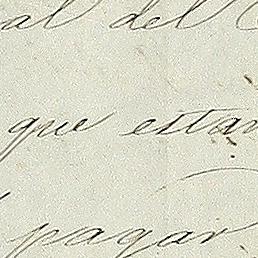 al del
que estan
pagar